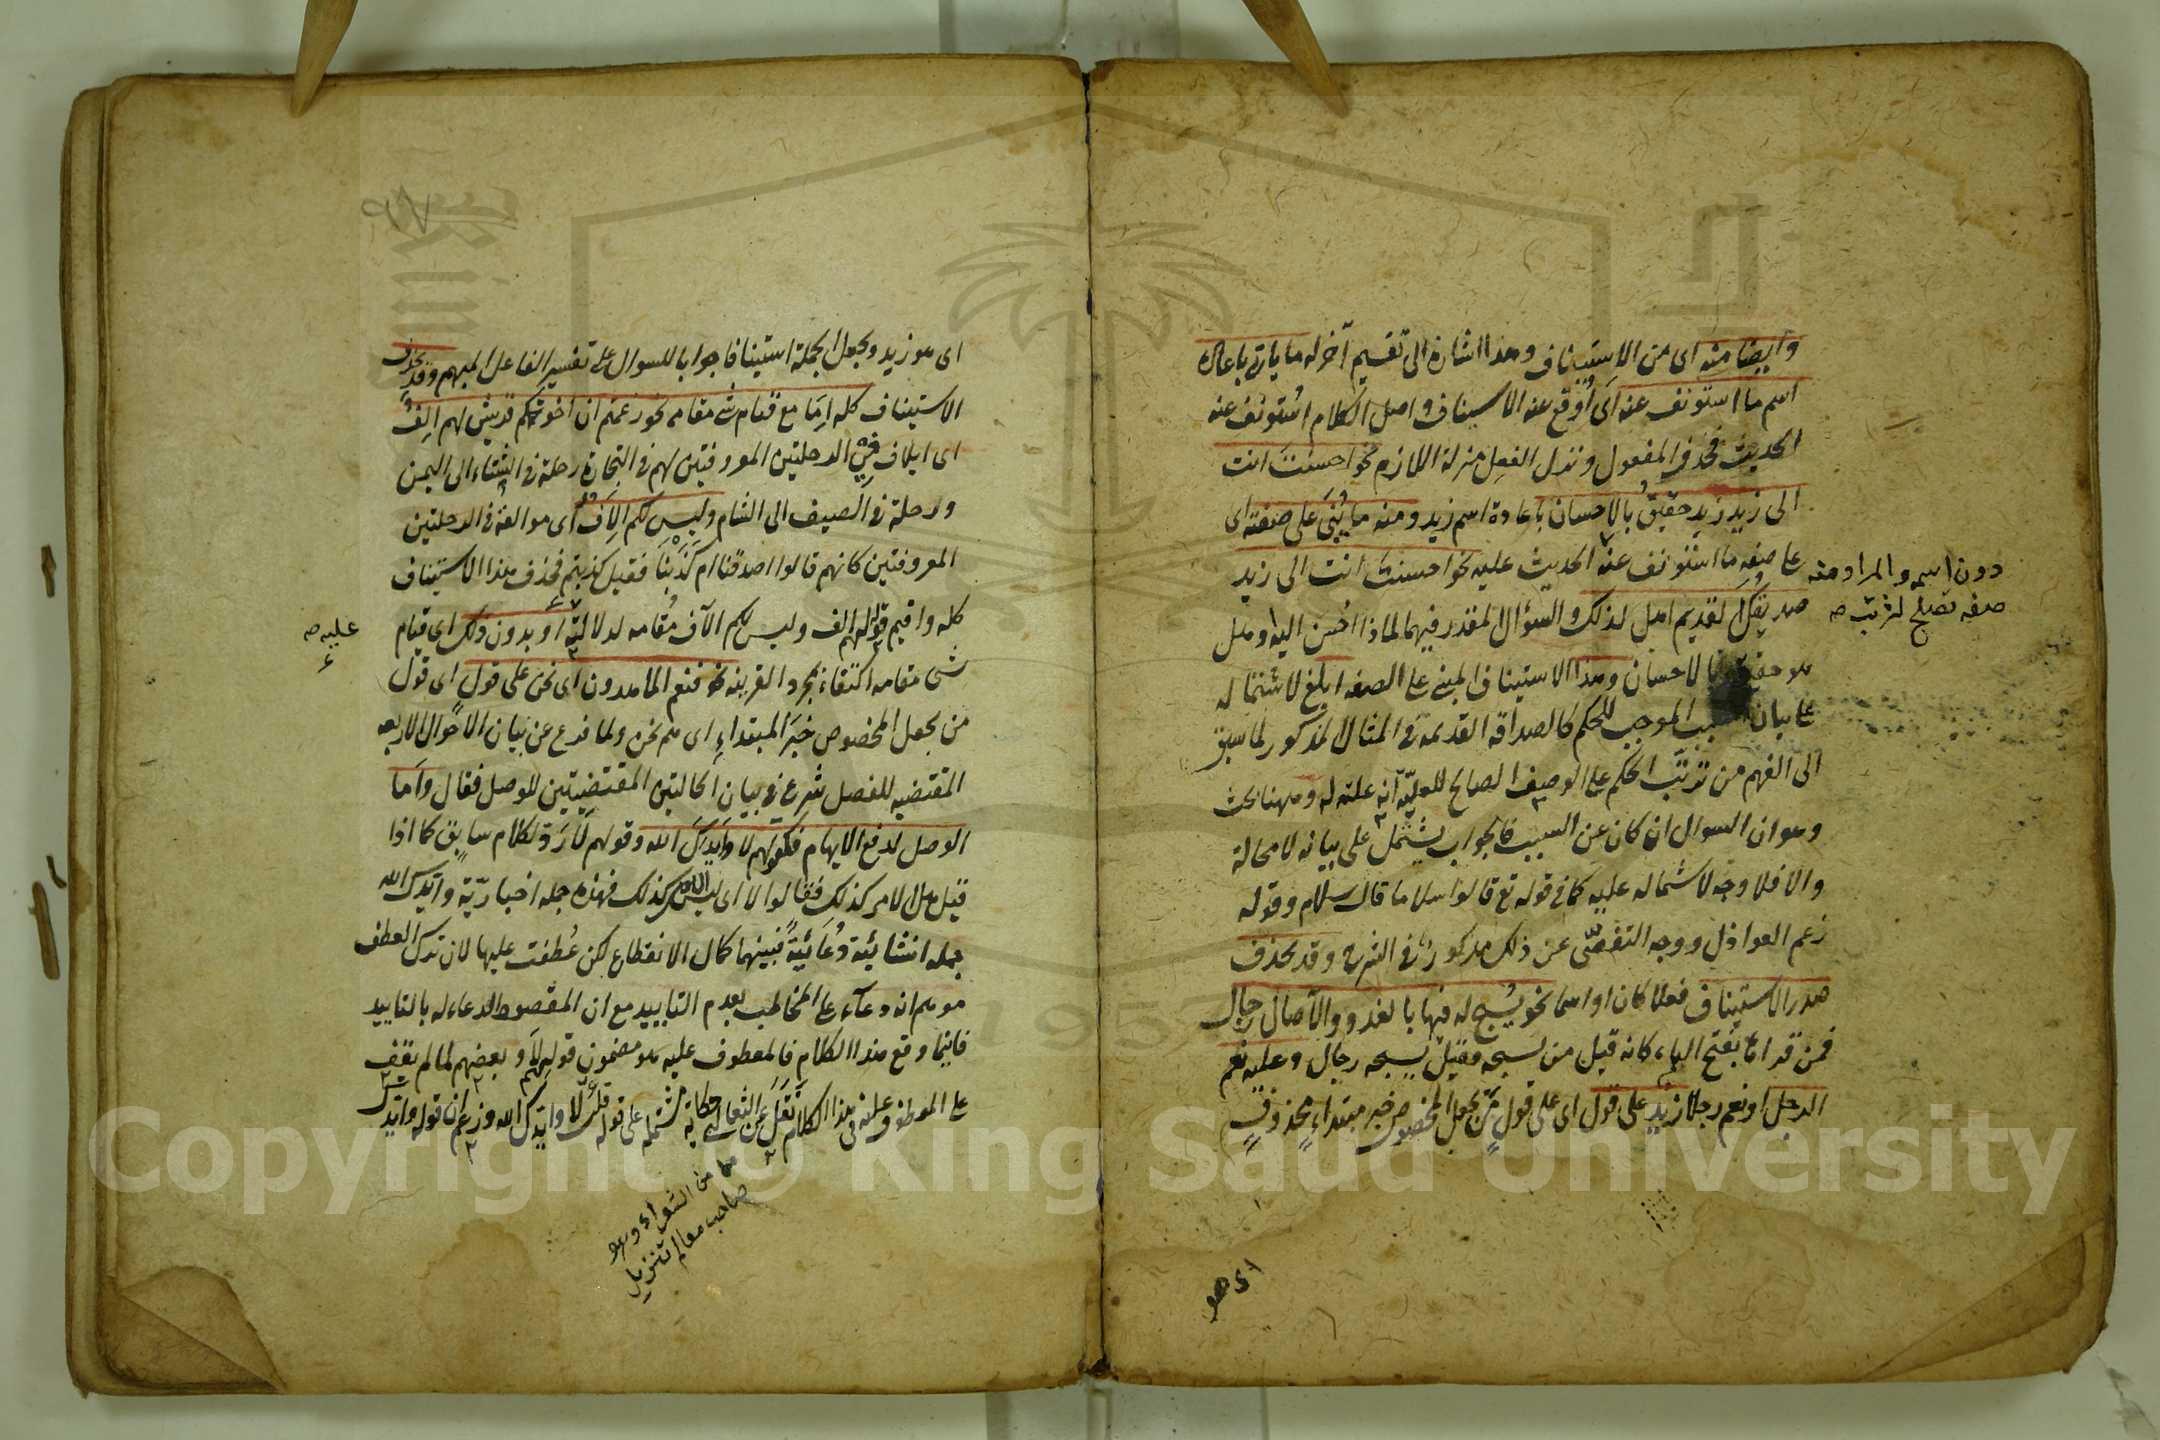 وايضا منه اى من الاستيناف وهذا اشارة الى تقسيم آخر له ما ياتى باعادة
اسم ما استونف عنه اى اوقع عنه الاستيناف واصل الكلام استونف عنه
الحديث فحذف المفعول ونزل الفعل منزلة اللازم نحو احسنت انت
الى زيد زيد حقيق بالاحسان باعادة اسم زيد ومنه ما يبنى على صفته اى
على صفة ما استونف عنه الحديث عليه نحو احسنت انت الى زيد
دون اسمه والمراد منه
صفة تصلح لترتب صح
صديقك القديم اهل لذلك والسؤال المقدر فيهما لماذا احسن اليه وهل
هو حقيق بالاحسان وهذا الاستيناف المبنى على الصفة ابلغ لاشتماله
على بيان السبب الموجب للحكم كالصداقة القديمة فى المثال المذكور لما سبق
الى الفهم من ترتب الحكم على الوصف الصالح للعلية انه علة له وههنا بحث
وهو ان السوال ان كان عن السبب فالجواب يشتمل على بيانه لا محالة
والا فلا وجه لاشتماله عليه كما فى قوله تع قالوا سلاما قال سلام وقوله
زعم العواذل ووجه التفصى عن ذلك مذكور فى الشرح وقد يحذف
صدر الاستيناف فعلا كان او اسما نحو يسبح له فيها بالغدو والآصال رجال
فمن قراها بفتح الباء كانه قيل من يسبحه فقيل يسبحه رجال وعليه نعم
الرجل او نعم رجلا زيد على قول اى على قول من يجعل المخصوص خبر مبتداء محذوف
اى هو
اى هو زيد ويجعل الجملة استينافا جوابا للسوال على تفسير الفاعل المبهم وقد يحذف
الاستيناف كله اما مع قيام شئ مقامه نحو زعمتم ان اخوتكم قريش لهم الف
اى ايلاف فى الرحلتين المعروفتين لهم فى التجارة رحلة فى الشتاء الى اليمن
ورحلة فى الصيف الى الشام وليس لكم الاف اى موالفة فى الرحلتين
المعروفتين كانهم قالوا اصدقنا ام كذبنا فقيل كذبتم فحذف هذا الاستيناف
كله واقيم قوله لهم الف وليس لكم الآف مقامه لدلالته او بدون ذلك اى قيام
عليه صح
شئ مقامه اكتفاء بمجرد القرينة نحو فنعم الماهدون اى نحن على قول اى قول
من يجعل المخصوص خبر المبتداء اى هم نحن ولما فرع عن بيان الاحوال الاربعة
المقتضية للفصل شرع فى بيان الحالتين المقتضيتين للوصل فقال واما
الوصل لدفع الايهام فكقولهم لا وايدك الله وقولهم لا رد لكلام سابق كما اذا
قيل هل الامر كذلك فقالوا لا اى ليس الامر كذلك فهذه جملة اخبارية وايدك الله
جملة انشائية دعائية فبينهما كمال الانقطاع لكن عطفت عليها لان ترك العطف
موهم انه دعاء على المخاطب بعدم التاييد مع ان المقصود الدعاء له بالتاييد
فاينما وقع هذا الكلام فالمعطوف عليه هو مضمون قولهم لا وبعضهم لما لم يقف
على المعطوف عليه فى هذا الكلام نقل عن الثعالبى حكاية مشتملة على قوله قلت لا وايدك الله وزعم ان قوله وايدك
صاحب معالم تنزيل